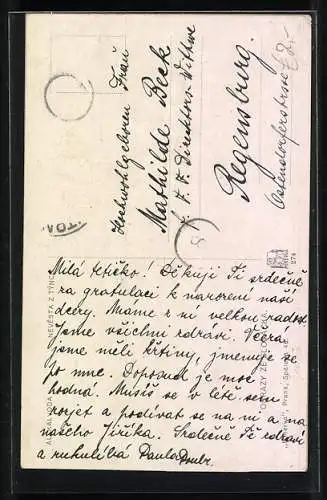 Hochwohlgeboren Frau
Mathilde Beck
k. k. Direktors-Wittwe
Regensburg.
Ostendorferstrasse
NEVĚSTA Z TÝNCE
274
Milá tetičko! Děkuji Ti srdečně
za gratulaci k narození naší
dcery. Máme z ní velkou radost.
Jsme všichni zdrávi. Včera
jsme měli křtiny, jmenuje se
po mne. Doposud je moc
hodná. Musíš se v létě sem
rozjet a podívat se na ni a na
našeho Jiříka. Srdečně Tě zdraví
a rukulíbá Paula